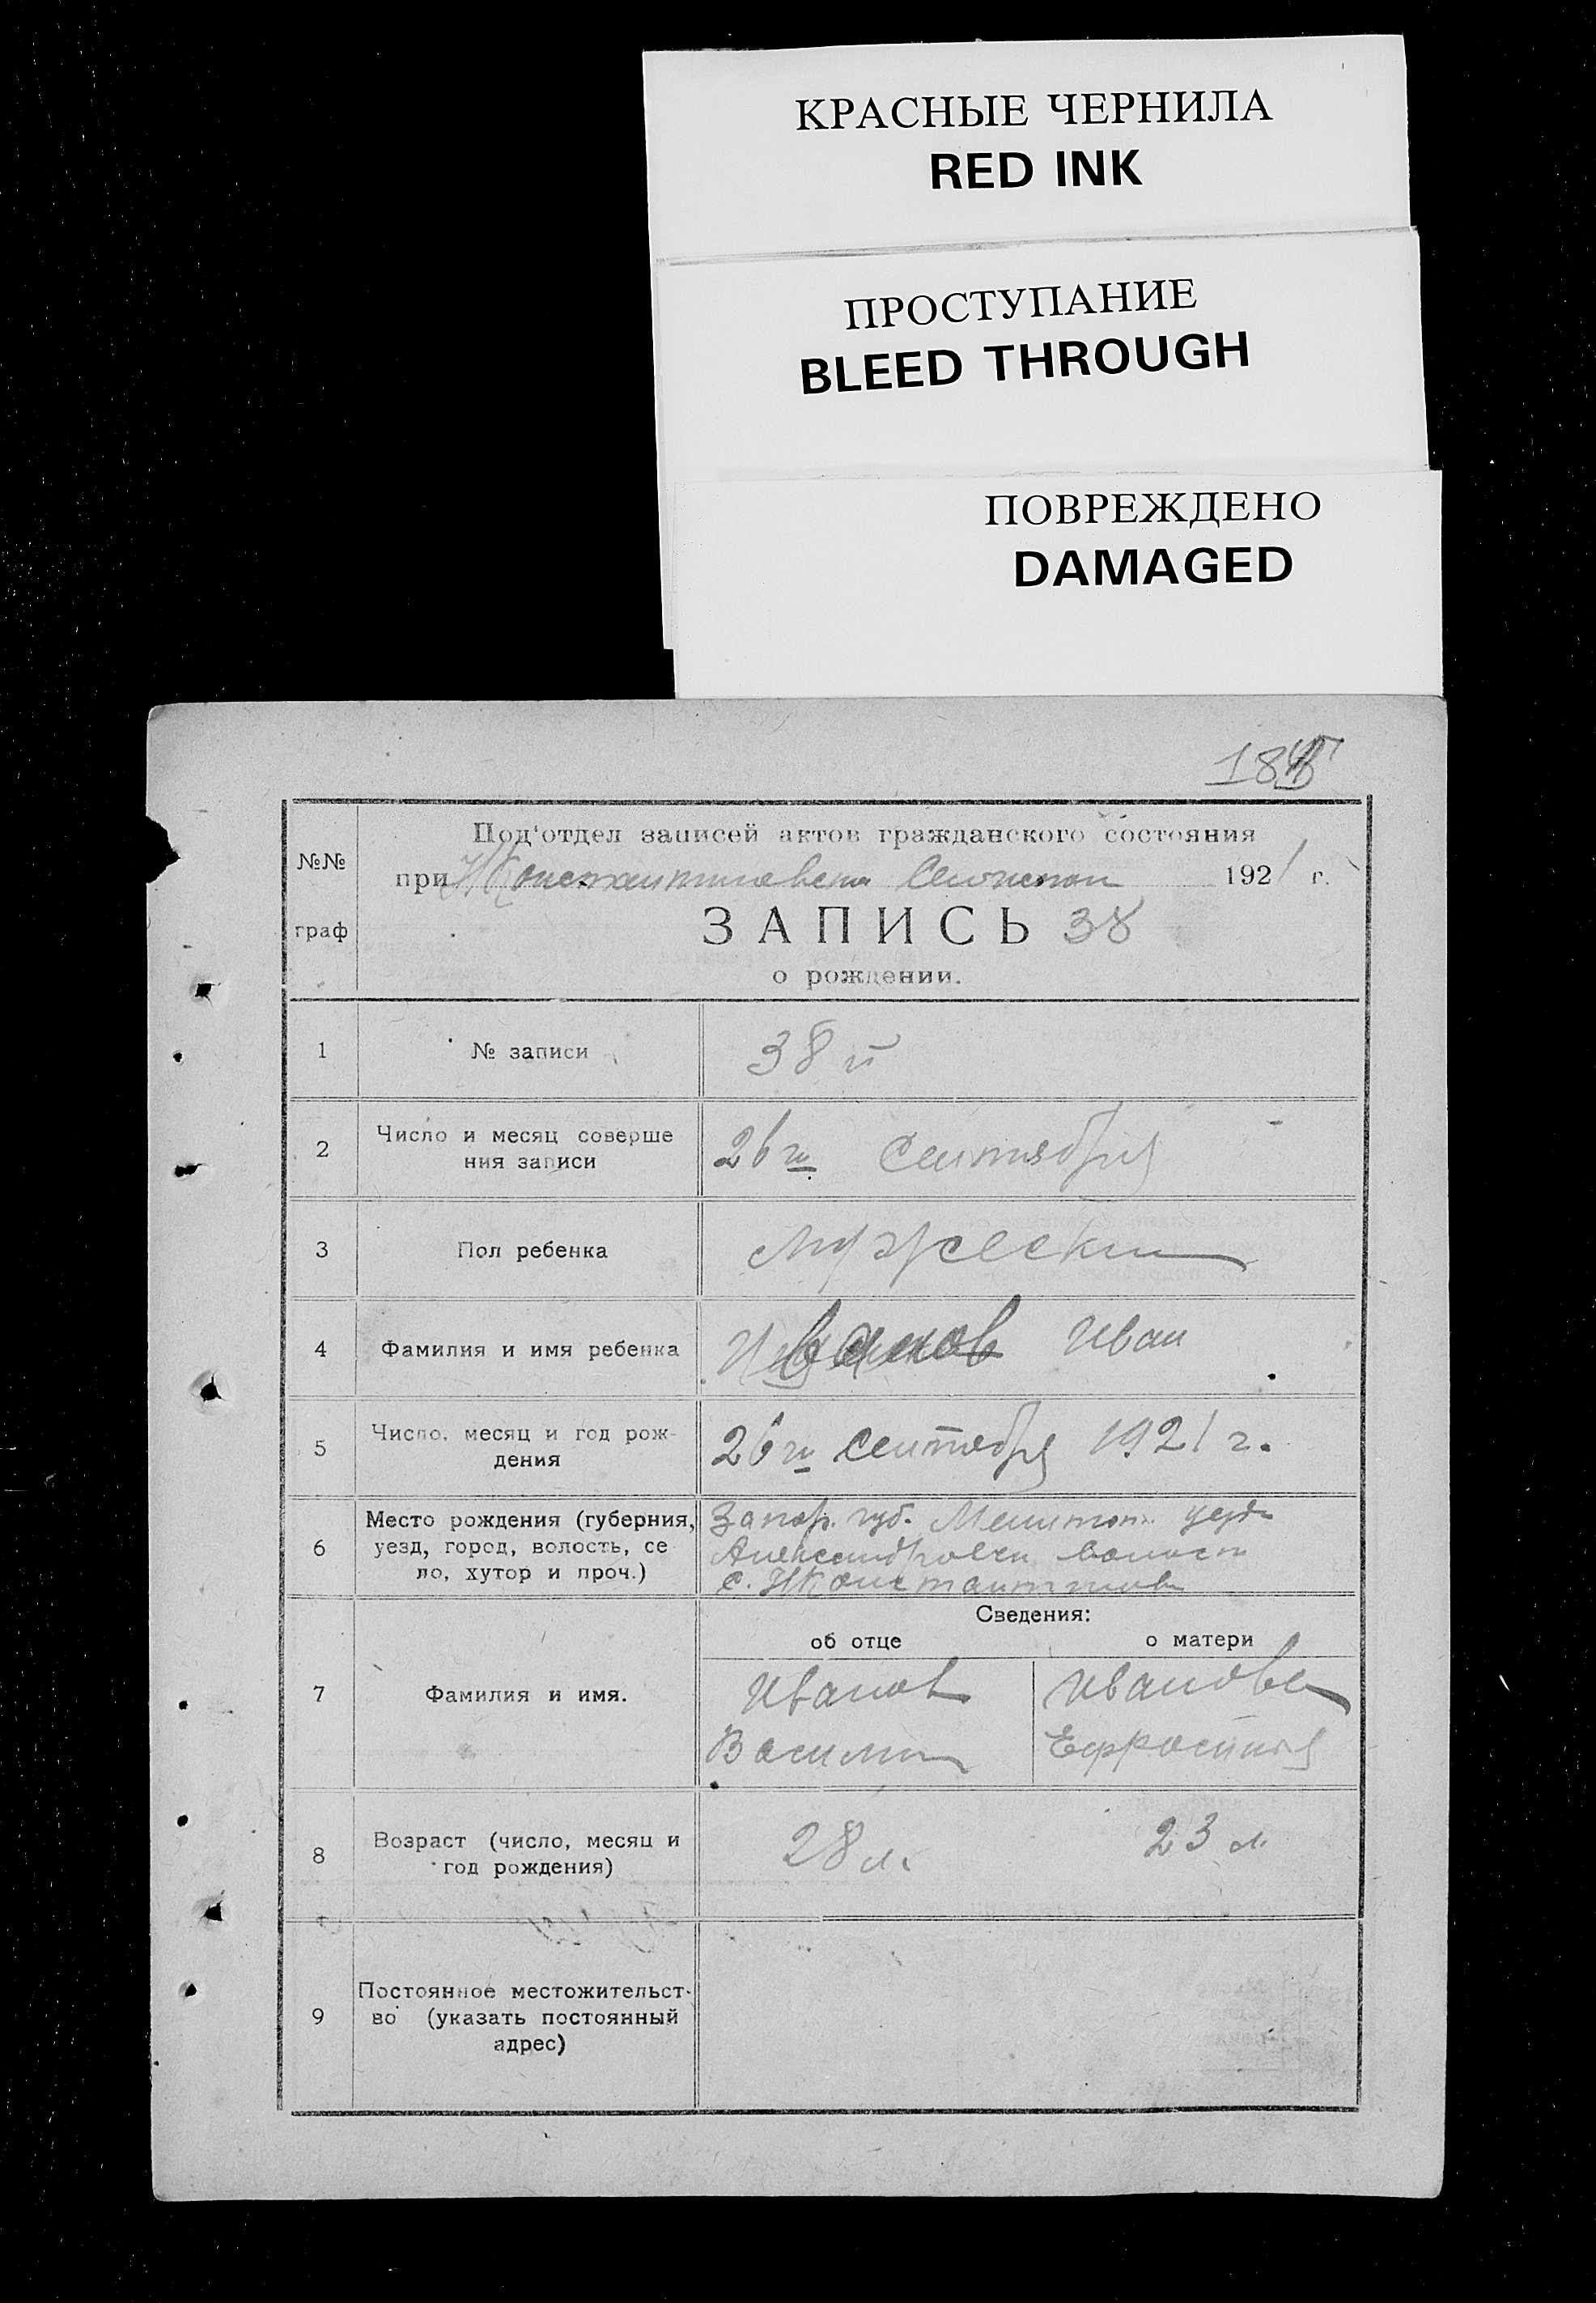 КРАСНЫЕ ЧЕРНИЛА
RED INK
ПРОСТУПАНИЕ
BLEED THROUGH
ПОВРЕЖДЕНО
DAMAGED
№№
граф
Под'отдел записей актов гражданского состояния
при 1921 г.
ЗАПИСЬ 38
о рождении.
1
№ записи
38 й
2
Число и месяц соверше
ния записи
26 го Сентября
3
Пол ребенка
Мужески
4
Фамилия и имя ребенка
Иванов Иван
5
Число, месяц и год рож-
дения
26 го Сентября 1921 г.
6
Место рождения (губерния,
уезд, город, волость, се
ло, хутор и проч.)
Запор. губ. Мелитоп. уезда
Александровск волост
с. НКонстантиновк
Сведения:
об отце
о матери
7
Фамилия и имя.
Иванов
Василий
Иванова
Ефросиния
8
Возраст (число, месяц и
год рождения)
28 л.
23 л.
9
Постоянное местожительст-
во (указать постоянный
адрес)